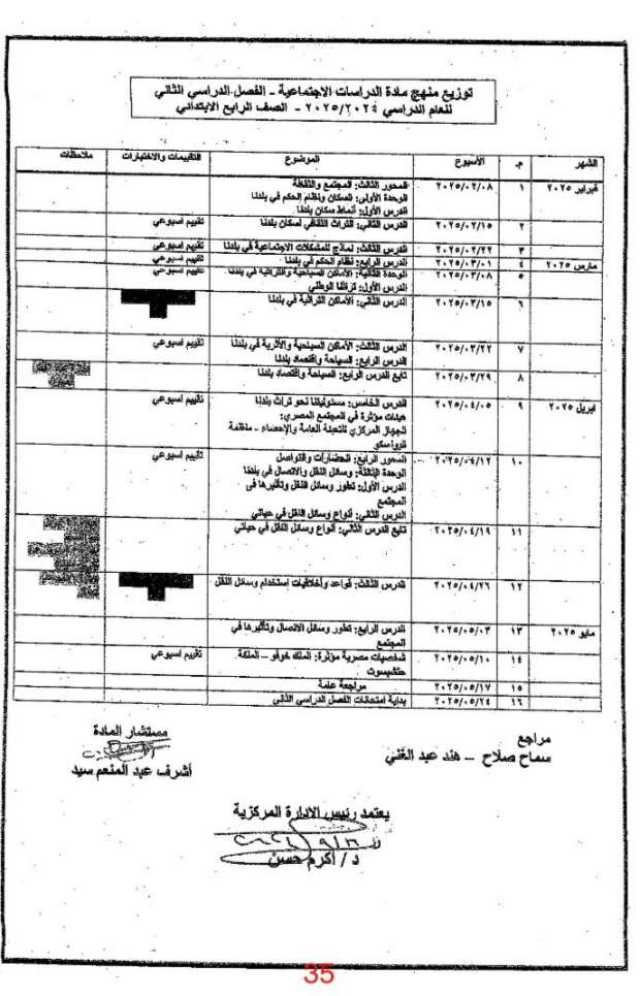 توزيع منهج مادة الدراسات الاجتماعية - الفصل الدراسي الثاني
للعام الدراسي ٢٠٢٥/٢٠٢٤ - الصف الرابع الابتدائي
الشهر م الأسبوع الموضوع التقييمات والاختبارات ملاحظات
فبراير ٢٠٢٥ ١ ٢٠٢٥/٠٢/٠٨ المحور الثالث: المجتمع والثقافة
الوحدة الأولى: السكان ونظام الحكم في بلدنا
الدرس الأول: أنماط سكان بلدنا
٢ ٢٠٢٥/٠٢/١٥ الدرس الثاني: التراث الثقافي لسكان بلدنا تقييم اسبوعي
٣ ٢٠٢٥/٠٢/٢٢ الدرس الثالث: نماذج للمشكلات الاجتماعية في بلدنا تقييم اسبوعي
مارس ٢٠٢٥ ٤ ٢٠٢٥/٠٣/٠١ الدرس الرابع: نظام الحكم في بلدنا تقييم اسبوعي
٥ ٢٠٢٥/٠٣/٠٨ الوحدة الثانية: الأماكن السياحية والتراثية في بلدنا تقييم اسبوعي
الدرس الأول: تراثنا الوطني
٦ ٢٠٢٥/٠٣/١٥ الدرس الثاني: الأماكن التراثية في بلدنا
٧ ٢٠٢٥/٠٣/٢٢ الدرس الثالث: الأماكن السياحية والأثرية في بلدنا تقييم اسبوعي
الدرس الرابع: السياحة واقتصاد بلدنا
٨ ٢٠٢٥/٠٣/٢٩ تابع الدرس الرابع: السياحة واقتصاد بلدنا
ابريل ٢٠٢٥ ٩ ٢٠٢٥/٠٤/٠٥ الدرس الخامس: مسئولياتنا نحو تراث بلدنا تقييم اسبوعي
هيئات مؤثرة في المجتمع المصري:
الجهاز المركزي للتعبئة العامة والإحصاء - منظمة
اليونسكو
١٠ ٢٠٢٥/٠٤/١٢ المحور الرابع: الحضارات والتواصل تقييم اسبوعي
الوحدة الثالثة: وسائل النقل والاتصال في بلدنا
الدرس الأول: تطور وسائل النقل وتأثيرها فى
المجتمع
الدرس الثاني: أنواع وسائل النقل في حياتي
١١ ٢٠٢٥/٠٤/١٩ تابع الدرس الثاني: أنواع وسائل النقل في حياتي
١٢ ٢٠٢٥/٠٤/٢٦ الدرس الثالث: قواعد وأخلاقيات استخدام وسائل النقل
مايو ٢٠٢٥ ١٣ ٢٠٢٥/٠٥/٠٣ الدرس الرابع: تطور وسائل الاتصال وتأثيرها في
المجتمع
١٤ ٢٠٢٥/٠٥/١٠ شخصيات مصرية مؤثرة: الملك خوفو – الملكة تقييم اسبوعي
حتشبسوت
١٥ ٢٠٢٥/٠٥/١٧ مراجعة عامة
١٦ ٢٠٢٥/٠٥/٢٤ بداية امتحانات الفصل الدراسي الثاني
مراجع
سماح صلاح – هند عبد الغني
مستشار المادة
أشرف عبد المنعم سيد
يعتمد رئيس الادارة المركزية
د / أكرم حسن
35